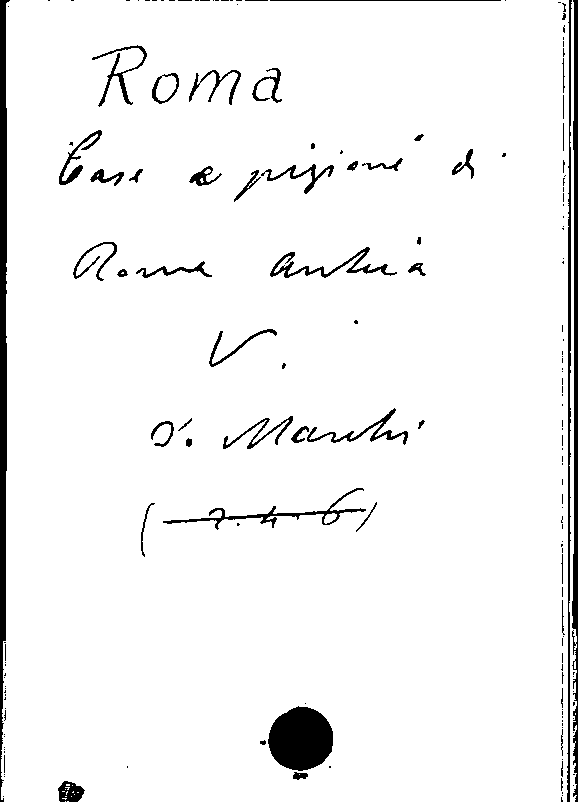 Roma
Case a pigione di
Roma antica
V.
D. Marchi
(2.4.6)